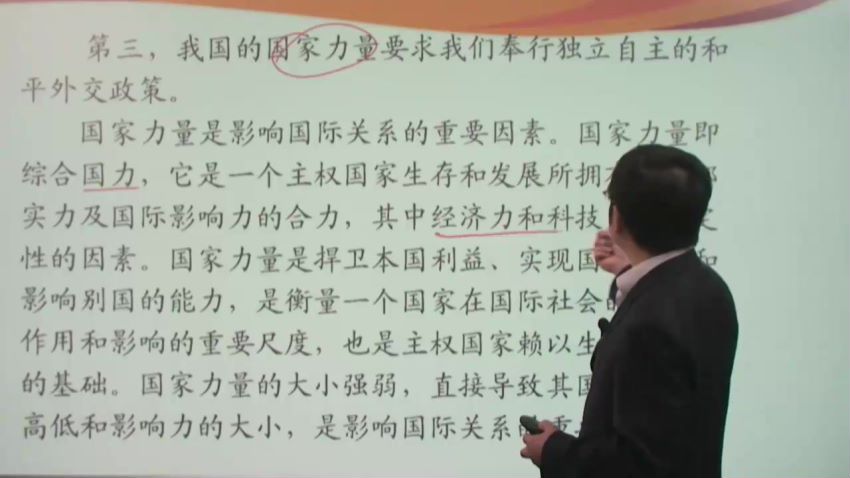 第三，我国的国家力量要求我们奉行独立自主的和
平外交政策。
国家力量是影响国际关系的重要因素。国家力量即
综合国力，它是一个主权国家生存和发展所拥
实力及国际影响力的合力，其中经济力和科技
性的因素。国家力量是捍卫本国利益、实现国 和
影响别国的能力，是衡量一个国家在国际社会的
作用和影响的重要尺度，也是主权国家赖以生
的基础。国家力量的大小强弱，直接导致其国
高低和影响力的大小，是影响国际关系的重